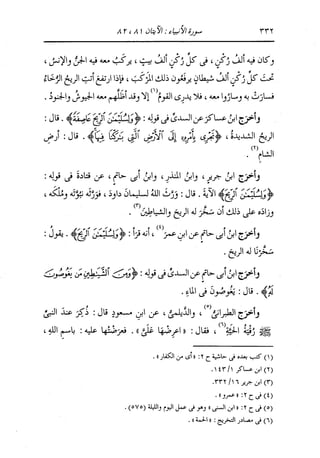 ٣٣٢ سورة الأنبياء : الآيتان ٨١ ، ٨٢
وكان فيه ألفُ رُكنٍ ، فى كلِّ رُكنٍ ألفُ بيتٍ ، يركَبُ معه فيه الجنُّ والإنسُ ،
تحتَ كلِّ رُكنٍ ألفُ شيطانٍ يرفَعُون ذلك المَركَبَ ، فإذا ارتفَع أتَتِ الريحُ الرُّخاءُ
فسارَتْ به وسارُوا معه ، فلا يدرى القومُ (١) إلا وقد أظلَّهم معه الجيوشُ والجنودُ .
وأخرَج ابنُ عساكرَ عن السدىِّ فى قولِه : ﴿ وَلِسُلَيْمَٰنَ ٱلرِّيحَ عَاصِفَةً ﴾ . قال :
الريحَ الشديدةَ ، ﴿ تَجْرِى بِأَمْرِهِۦٓ إِلَى ٱلْأَرْضِ ٱلَّتِى بَٰرَكْنَا فِيهَا ﴾ . قال : أرضِ
الشامِ (٢) .
وأخرَج ابنُ جريرٍ ، وابنُ المنذرِ ، وابنُ أبى حاتمٍ ، عن قتادةَ فى قولِه :
﴿ وَلِسُلَيْمَٰنَ ٱلرِّيحَ ﴾ الآية . قال : ورَّث اللهُ لسليمانَ داودَ ، فورَّثه نبوَّتَه ومُلكَه ،
وزاده على ذلك أن سخَّر له الريحَ والشياطينَ (٣) .
وأخرَج ابنُ أبى حاتمٍ عن ابنِ عمرَ (٤) ، أنه قرَأ : ﴿ وَلِسُلَيْمَٰنَ ٱلرِّيحَ ﴾ . يقولُ :
سخَّرْنا له الريحَ .
وأخرَج ابنُ أبى حاتمٍ عن السدىِّ فى قولِه : ﴿ وَمِنَ ٱلشَّيَٰطِينِ مَن يَغُوصُونَ
لَهُۥ ﴾ . قال : يَغُوصُون فى الماءِ .
وأخرَج الطبرانىُّ (٥) ، والدَّيلمىُّ ، عن ابنِ مسعودٍ قال : ذُكِرَ عندَ النبىِّ
ﷺ رُقْيَةُ الحَيَّةِ (٦) ، فقال : « اعرِضْها علىَّ » . فعرَضْتُها عليه : باسمِ اللهِ ،
(١) كتب بعده فى حاشية ح ٢ : « أى من الكفار » .
(٢) ابن عساكر ١/ ١٤٣.
(٣) ابن جرير ١٦/ ٣٣٢.
(٤) فى ح ٢ : « عمرو » .
(٥) فى ح ٢ : « ابن السنى » وهو فى عمل اليوم والليلة (٥٧٥) .
(٦) فى مصادر التخريج : « الحمة » .